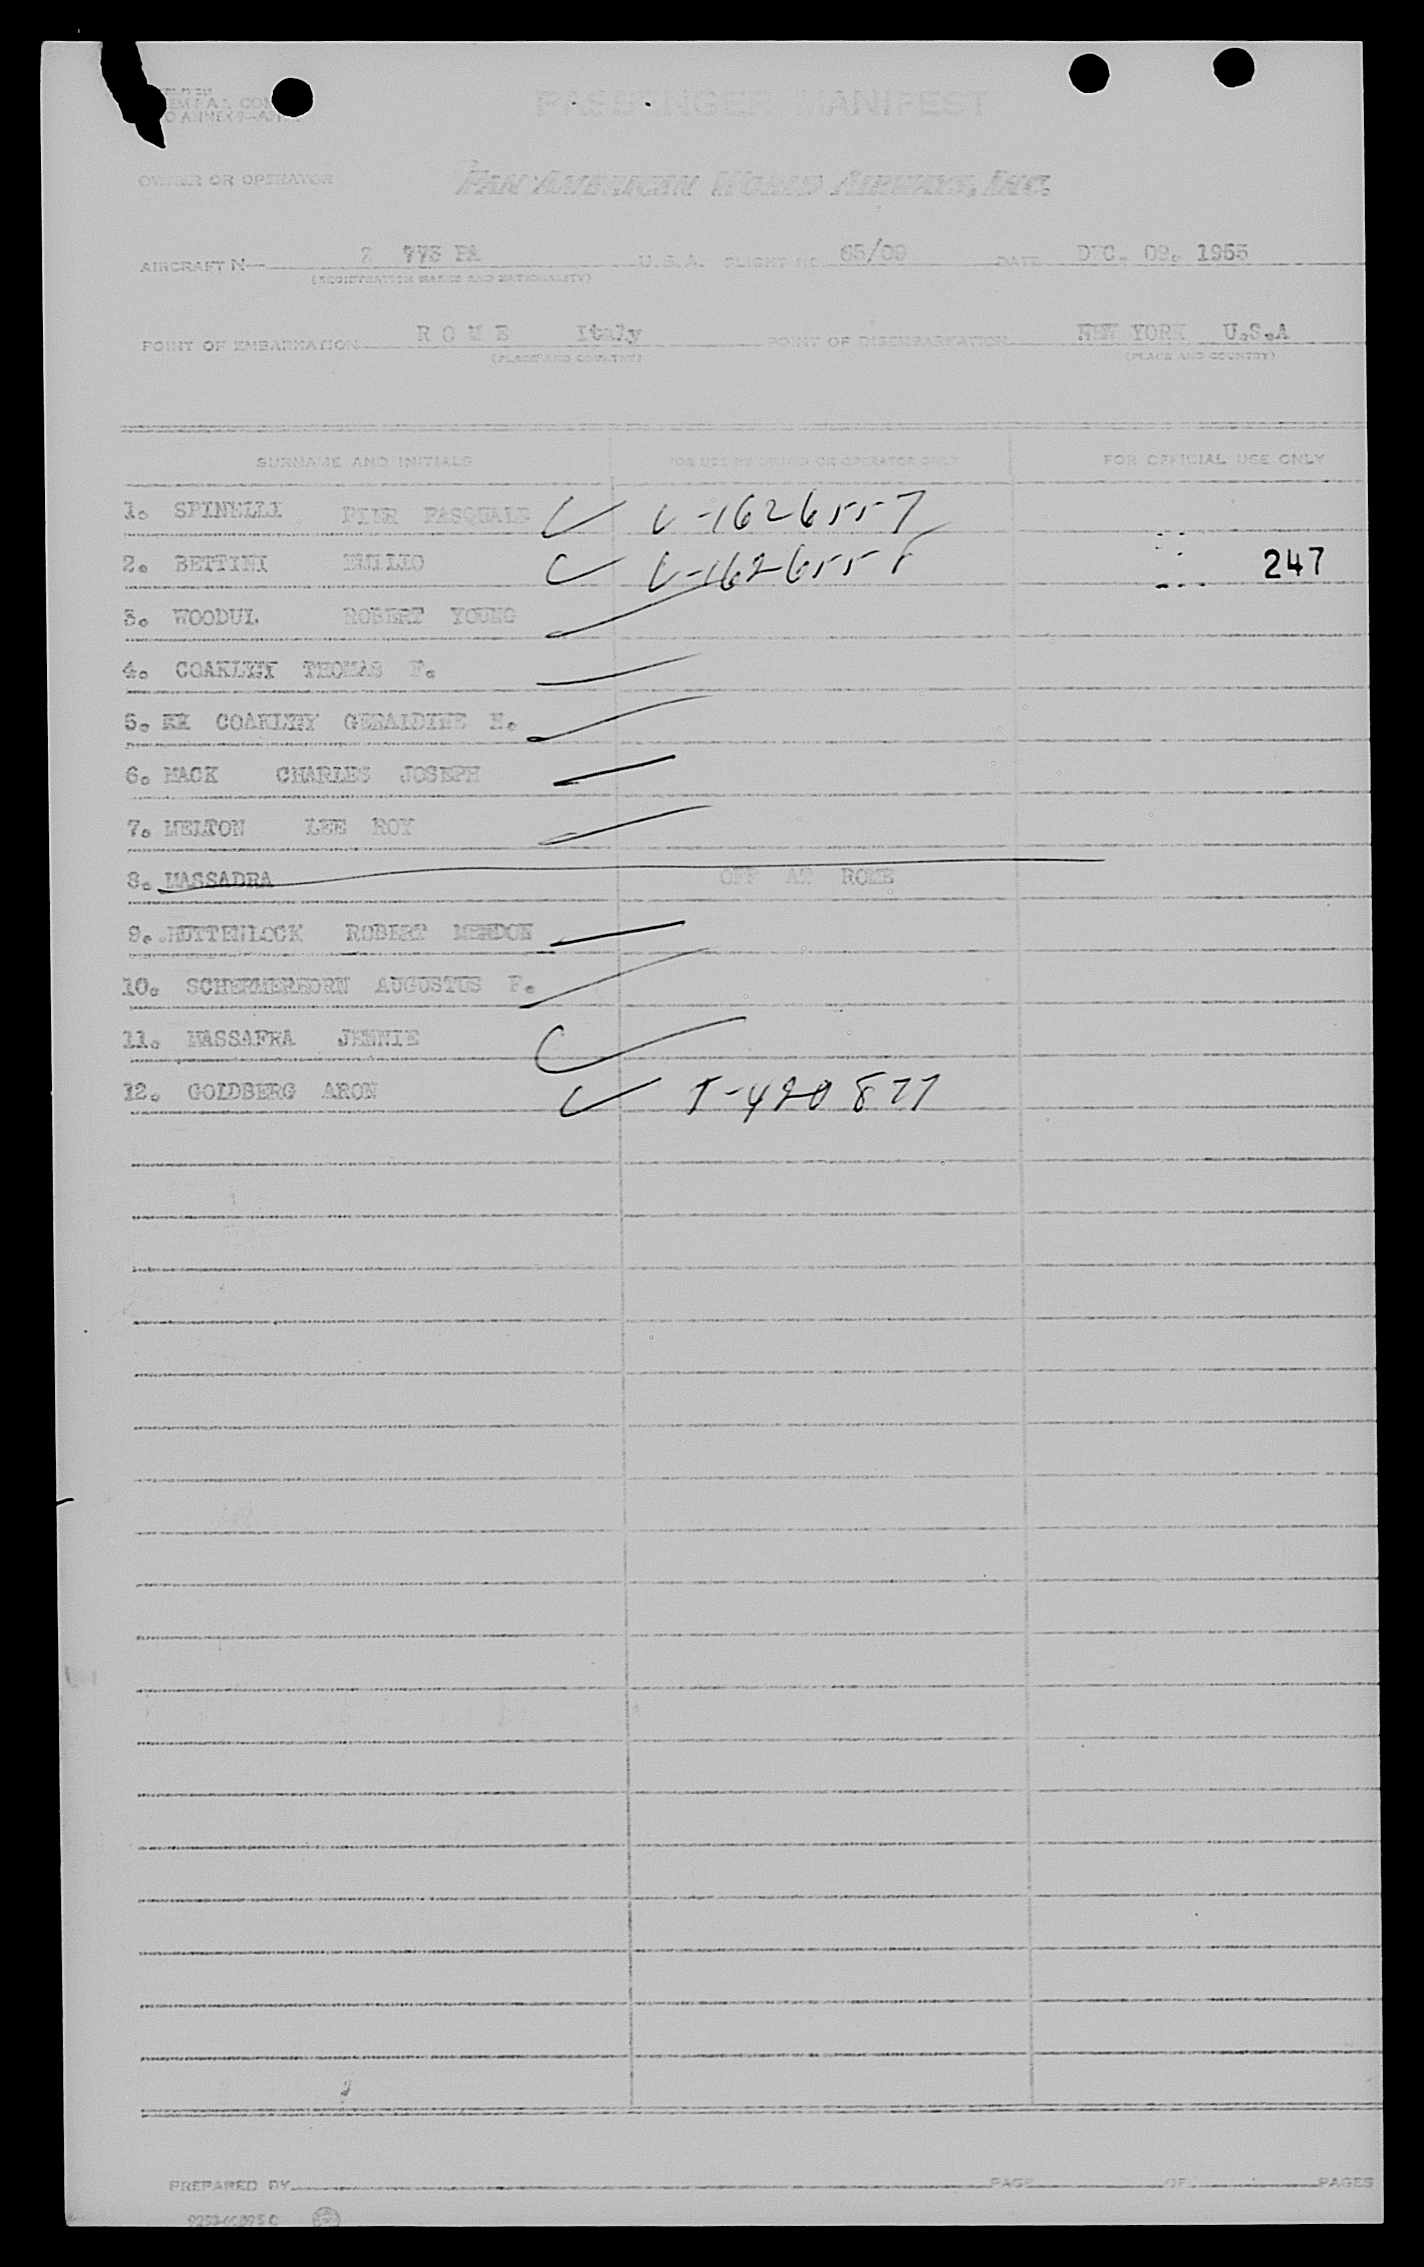 PASSENGER MANIFEST
OWNER OR OPERATOR PAN AMERICAN WORLD AIRWAYS, INC.
AIRCRAFT N 2 773 PA U.S.A. FLIGHT NO. 65/09 DATE DEC. 09. 1955
(REGISTRATION MARKS AND NATIONALITY)
POINT OF EMBARKATION R O M E Italy POINT OF DISEMBARKATION NEW YORK U.S.A
(PLACE AND COUNTRY) (PLACE AND COUNTRY)
SURNAME AND INITIALS FOR USE BY OWNER OR OPERATOR ONLY FOR OFFICIAL USE ONLY
1. SPINELLI PIER PASQUALE V-1626557
2. BETTINI EMILIO 247
3. WOODUL ROBERT YOUNG
4. COAKLEY THOMAS F.
5. COAKLEY GERALDINE
6. MACK CHARLES JOSEPH
7. MELTON LEE ROY
8. MASSADRA OFF AT ROME
9. HUTTENLOCK ROBERT
10. SCHERMERHORN AUGUSTUS F.
11. MASSAFRA JENNIE
12. GOLDBERG ARON T-420877
PREPARED BY PAGE OF PAGES